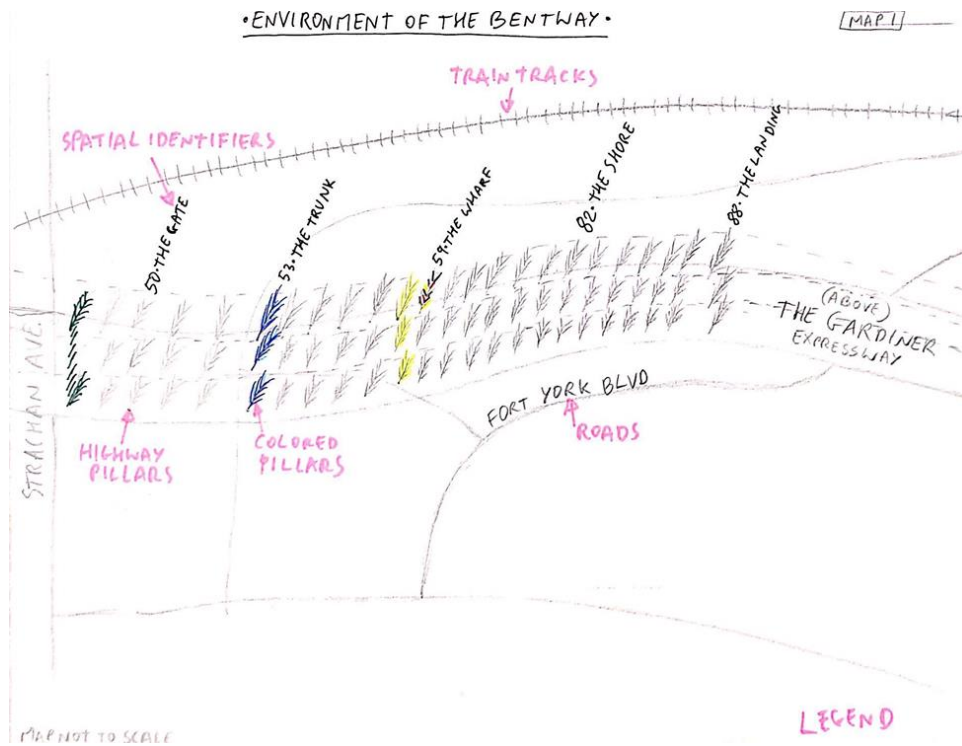 •ENVIRONMENT OF THE BENTWAY•
MAP 1
TRAIN TRACKS
SPATIAL IDENTIFIERS
50•THE GATE
53•THE TRUNK
59•THE WHARF
82•THE SHORE
88•THE LANDING
(ABOVE)
THE GARDINER
EXPRESSWAY
STRACHAN AVE.
FORT YORK BLVD
ROADS
HIGHWAY
PILLARS
COLORED
PILLARS
LEGEND
MAP NOT TO SCALE